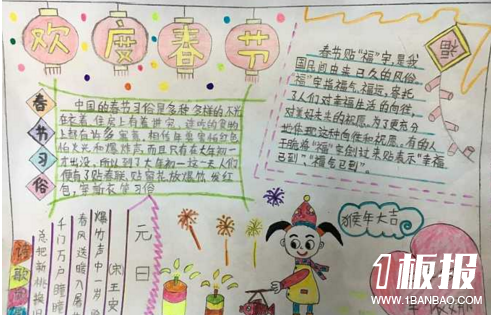 欢度春节
春节习俗
中国的春节习俗是多种多样的不光
在衣着、住房上有着讲究,连吃的食物
上都有许多寓意。相传年兽害怕红色
怕火光和爆炸声,而且只有在大年初一
才出没,所以到了大年初一这一天人们
便有了贴春联、贴窗花、放爆竹、发红
包,穿新衣等习俗
春节贴“福”字,是我
国民间由来已久的风俗。
“福”字指福气、福运,寄托
了人们对幸福生活的向往,
对美好未来的祝愿。为了更充分
地体现这种向往和祝愿,有的人
干脆将“福”字倒过来贴表示“幸福
已到”,“福气已到”。
福
元日
宋 王安
爆竹声中一岁
春风送暖入屠
千门万户曈曈
总把新桃换旧
诗歌
猴年大吉
1板报
WWW.1BANBAO.COM